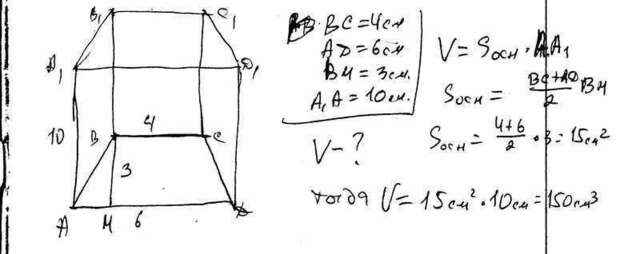 B₁ C₁
A₁ D₁
10
B 4 C
3
A H 6 D
BC = 4см
AD = 6см
BH = 3см.
A₁A = 10см.
V - ?
V = Sосн · AA₁
Sосн = (BC + AD)/2 BH
Sосн = (4+6)/2 · 3 = 15см²
тогда V = 15см² · 10см = 150см³